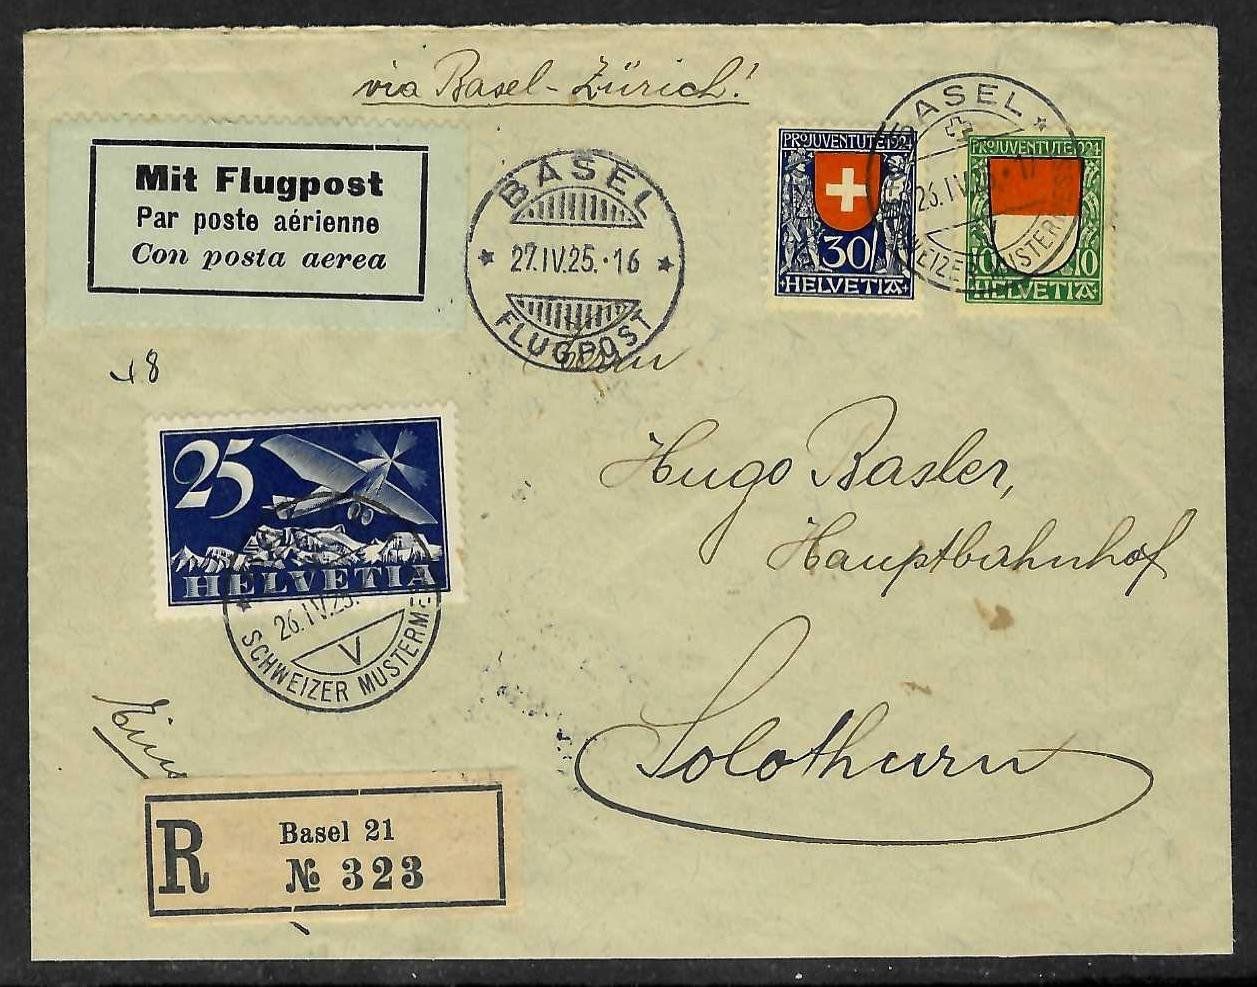 via Basel-Zürich!
Mit Flugpost
Par poste aérienne
Con posta aerea
BASEL
27.IV.25.·16
FLUGPOST
PRO JUVENTUTE 1924
30
HELVETIA
BASEL
26.IV.25.·17
PRO JUVENTUTE 1924
10 10
HELVETIA
Herrn
18
25
HELVETIA
26.IV.25.
V
SCHWEIZER MUSTERME
Hugo Basler,
Hauptbahnhof
Solothurn
R
Basel 21
№ 323